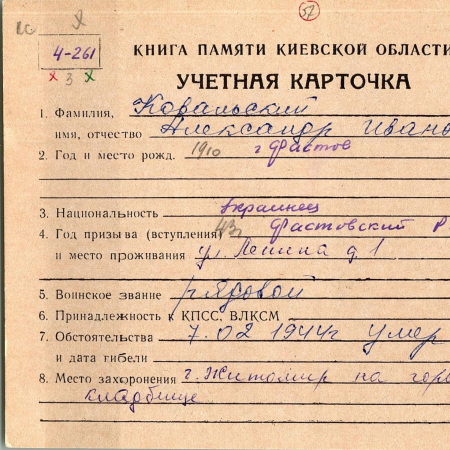 57
4-261
х 3 х
КНИГА ПАМЯТИ КИЕВСКОЙ ОБЛАСТИ
УЧЕТНАЯ КАРТОЧКА
1. Фамилия, Ковальский
имя, отчество Александр Ивано
2. Год и место рожд. 1910 г Фастов
3. Национальность украинец
4. Год призыва (вступления) 43г Фастовский р
и место проживания ул. Ленина д. 1
5. Воинское звание рядовой
6. Принадлежность к КПСС, ВЛКСМ
7. Обстоятельства 7.02 1944г умер
и дата гибели
8. Место захоронения г. Житомир на горо
кладбище